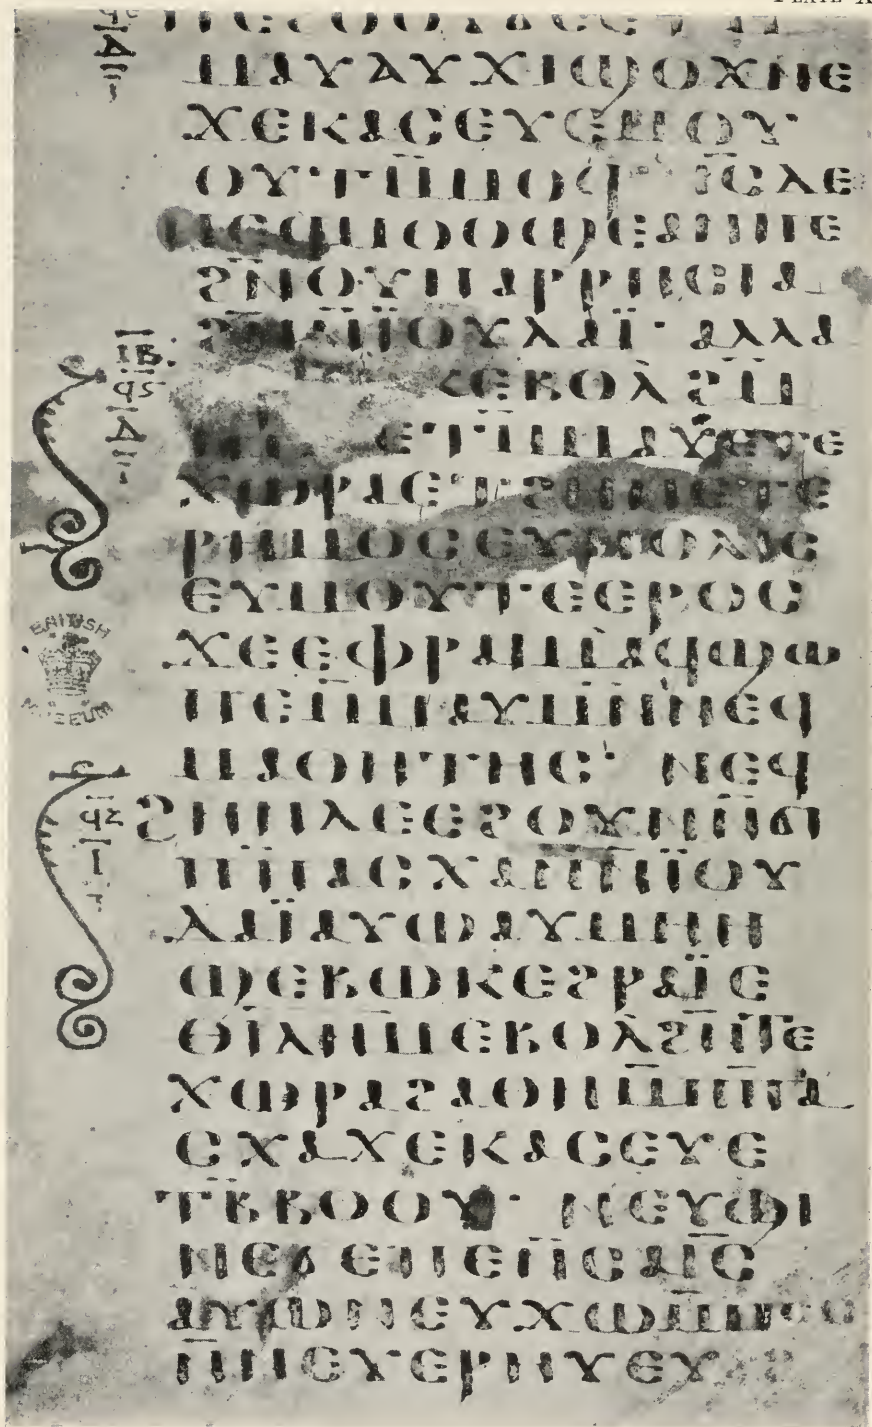 ⲡⲉϩⲟⲟⲩϭⲉⲉⲧⲙ̄
ⲙⲁⲩⲁⲩϫⲓϣⲟϫⲛⲉ
ϫⲉⲕⲁⲥⲉⲩⲉⲙⲟⲩ
ⲟⲩⲧⲙ̄ⲙⲟϥ· ⲓ̄ⲥ̄ⲇⲉ
ⲛⲉϥⲙⲟⲟϣⲉⲁⲛⲡⲉ
ϩⲛ̄ⲟⲩⲡⲁⲣⲣⲏⲥⲓⲁ
ϩⲛ̄ⲛ̄ⲓ̈ⲟⲩⲇⲁⲓ̈· ⲁⲗⲗⲁ
ⲕⲉⲃⲟⲗϩⲙ̄
ⲡⲙⲁ ⲉⲧⲙ̄ⲙⲁⲩⲉⲧⲉ
ⲭⲱⲣⲁⲉⲧϩⲏⲛⲉⲧⲉ
ⲣⲏⲙⲟⲥⲉⲩⲡⲟⲗⲓⲥ
ⲉⲩⲙⲟⲩⲧⲉⲉⲣⲟⲥ
ϫⲉⲉⲫⲣⲁⲓⲙⲁϥϣⲱ
ⲡⲉⲙ̄ⲙⲁⲩⲙⲛ̄ⲛⲉϥ
ⲙⲁⲑⲏⲧⲏⲥ· ⲛⲉϥ
ϩⲏⲛⲇⲉⲉϩⲟⲩⲛⲛ̄ϭⲓ
ⲡⲡⲁⲥⲭⲁⲛ̄ⲛ̄ⲓ̈ⲟⲩ
ⲇⲁⲓ̈ⲁⲩⲱⲁⲩⲙⲏⲏ
ϣⲉⲃⲱⲕⲉϩⲣⲁⲓ̈ⲉ
ⲑⲓ̄ⲗⲏ̄ⲙⲉⲃⲟⲗϩⲛ̄ⲧⲉ
ⲭⲱⲣⲁϩⲁⲑⲏⲙ̄ⲡⲡⲁ
ⲥⲭⲁϫⲉⲕⲁⲥⲉⲩⲉ
ⲧⲃ̄ⲃⲟⲟⲩ· ⲛⲉⲩϣⲓ
ⲛⲉϭⲉⲡⲉⲛ̄ⲥⲁⲓ̄ⲥ̄
ⲁⲩⲱⲛⲉⲩϫⲱⲙ̄ⲙⲟⲥ
ⲛ̄ⲛⲉⲩⲉⲣⲏⲩⲉⲩ
BRITISH
MUSEUM